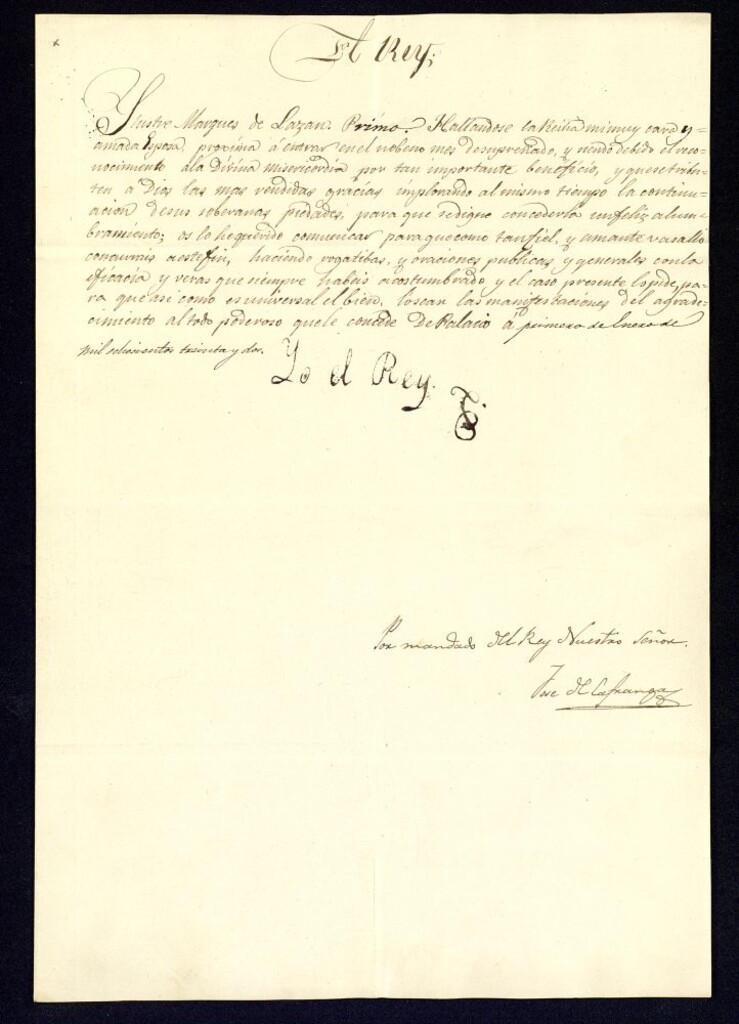 El Rey;
Ylustre Marques de Lazan. Primo. Hallandose la Reina mi muy cara y
amada Esposa proxima á entrar en el nobeno mes de su preñado, y siendo debido el reco=
nocimiento ala Divina misericordia por tan importante beneficio, y que se tribu=
ten á Dios las mas rendidas gracias implorando al mismo tiempo la continu=
acion de sus soberanas piedades, para que se digne concederla un feliz alum=
bramiento; os lo he querido comunicar para que como tan fiel, y amante vasallo
concurrais a este fin, haciendo rogatibas, y oraciones publicas y generales con la
eficacia y veras que siempre habeis acostumbrado y el caso presente lo pide, pa=
ra que asi como es universal el bien, lo sean las manifestaciones del agrade=
cimiento al todo poderoso que le concede De Palacio á primero de Enero de
mil ochocientos treinta y dos.
Yo el Rey.
Por mandado del Rey Nuestro Señor.
Jose de Cafranga